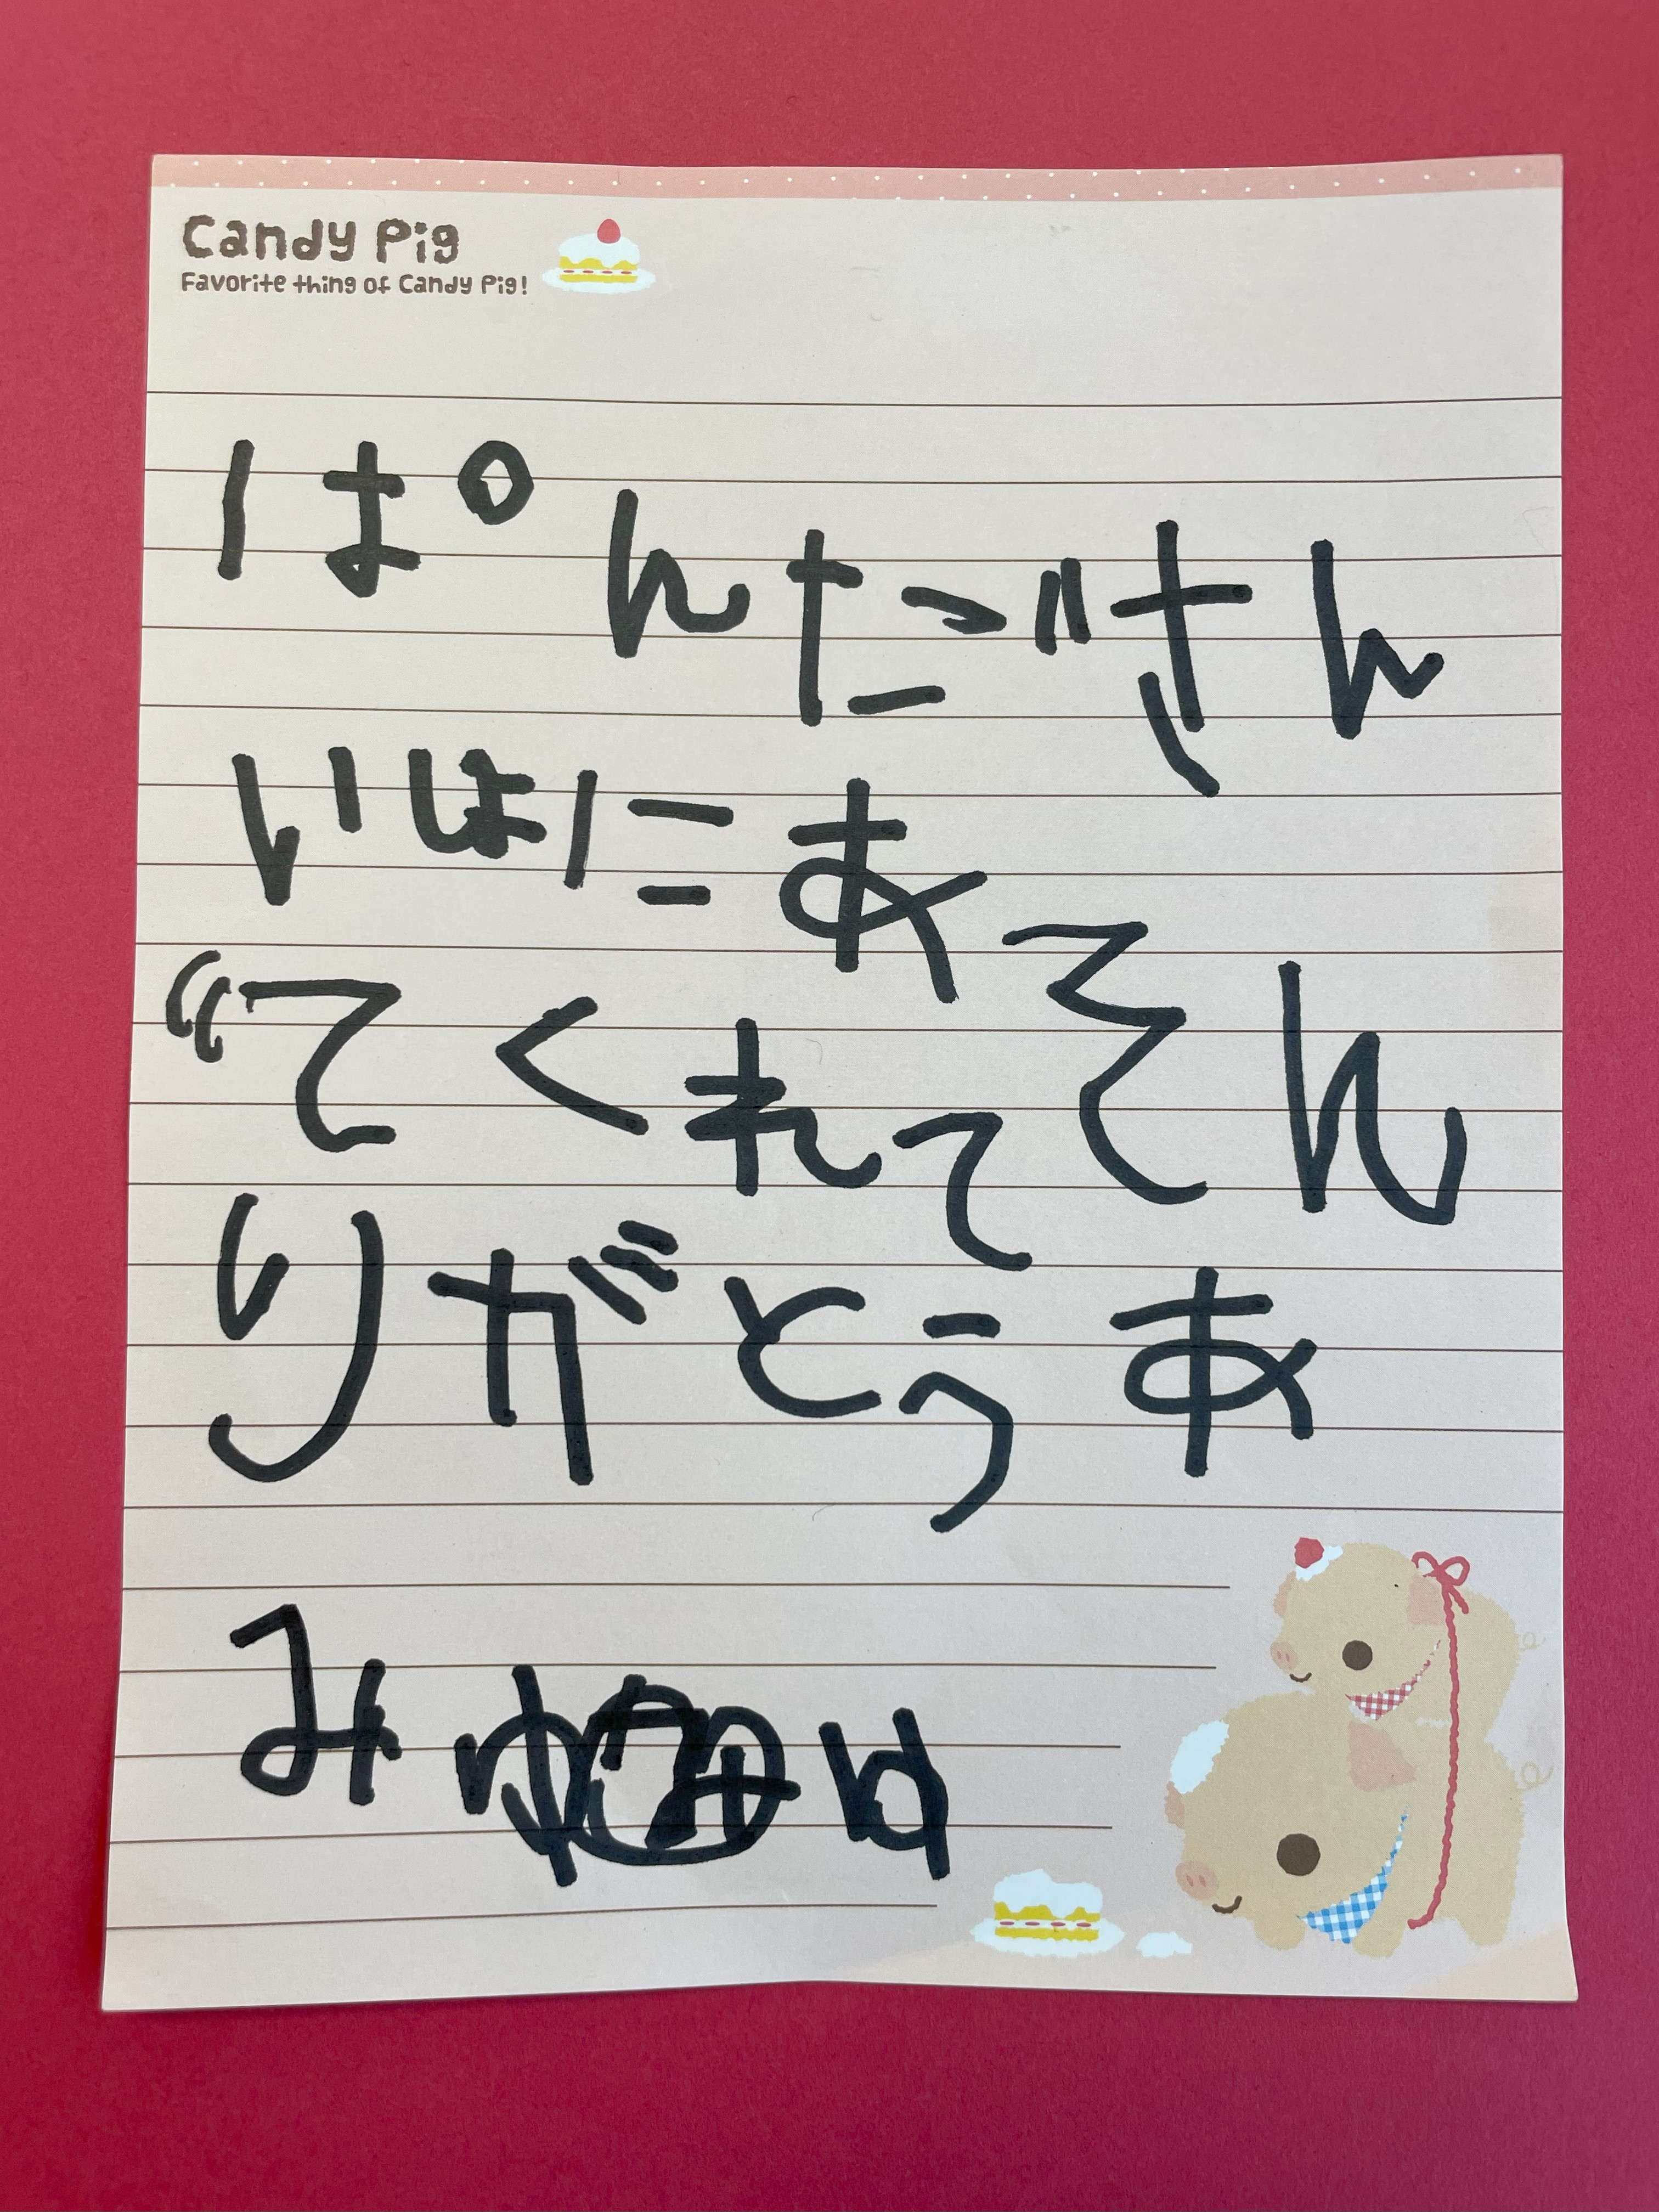 Candy Pig
Favorite thing of Candy Pig!
ぱんださん
いしょにあそん
でくれて
りがとうあ
みゆ